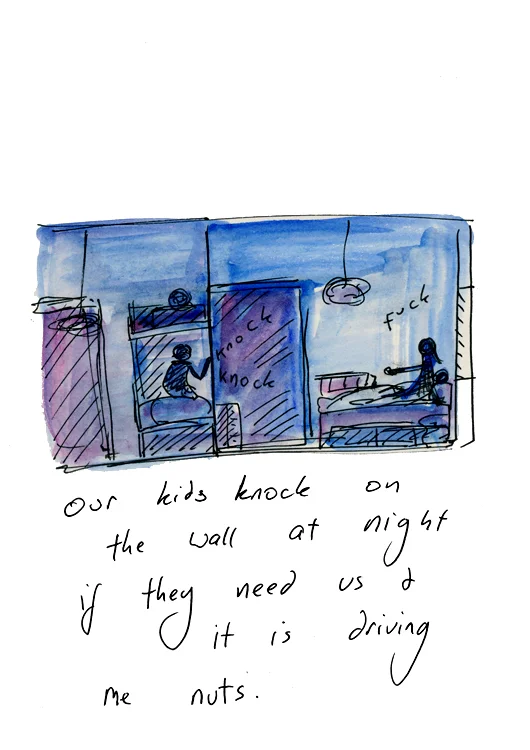 knock
knock
fuck
our kids knock on
the wall at night
if they need us &
it is driving
me nuts.